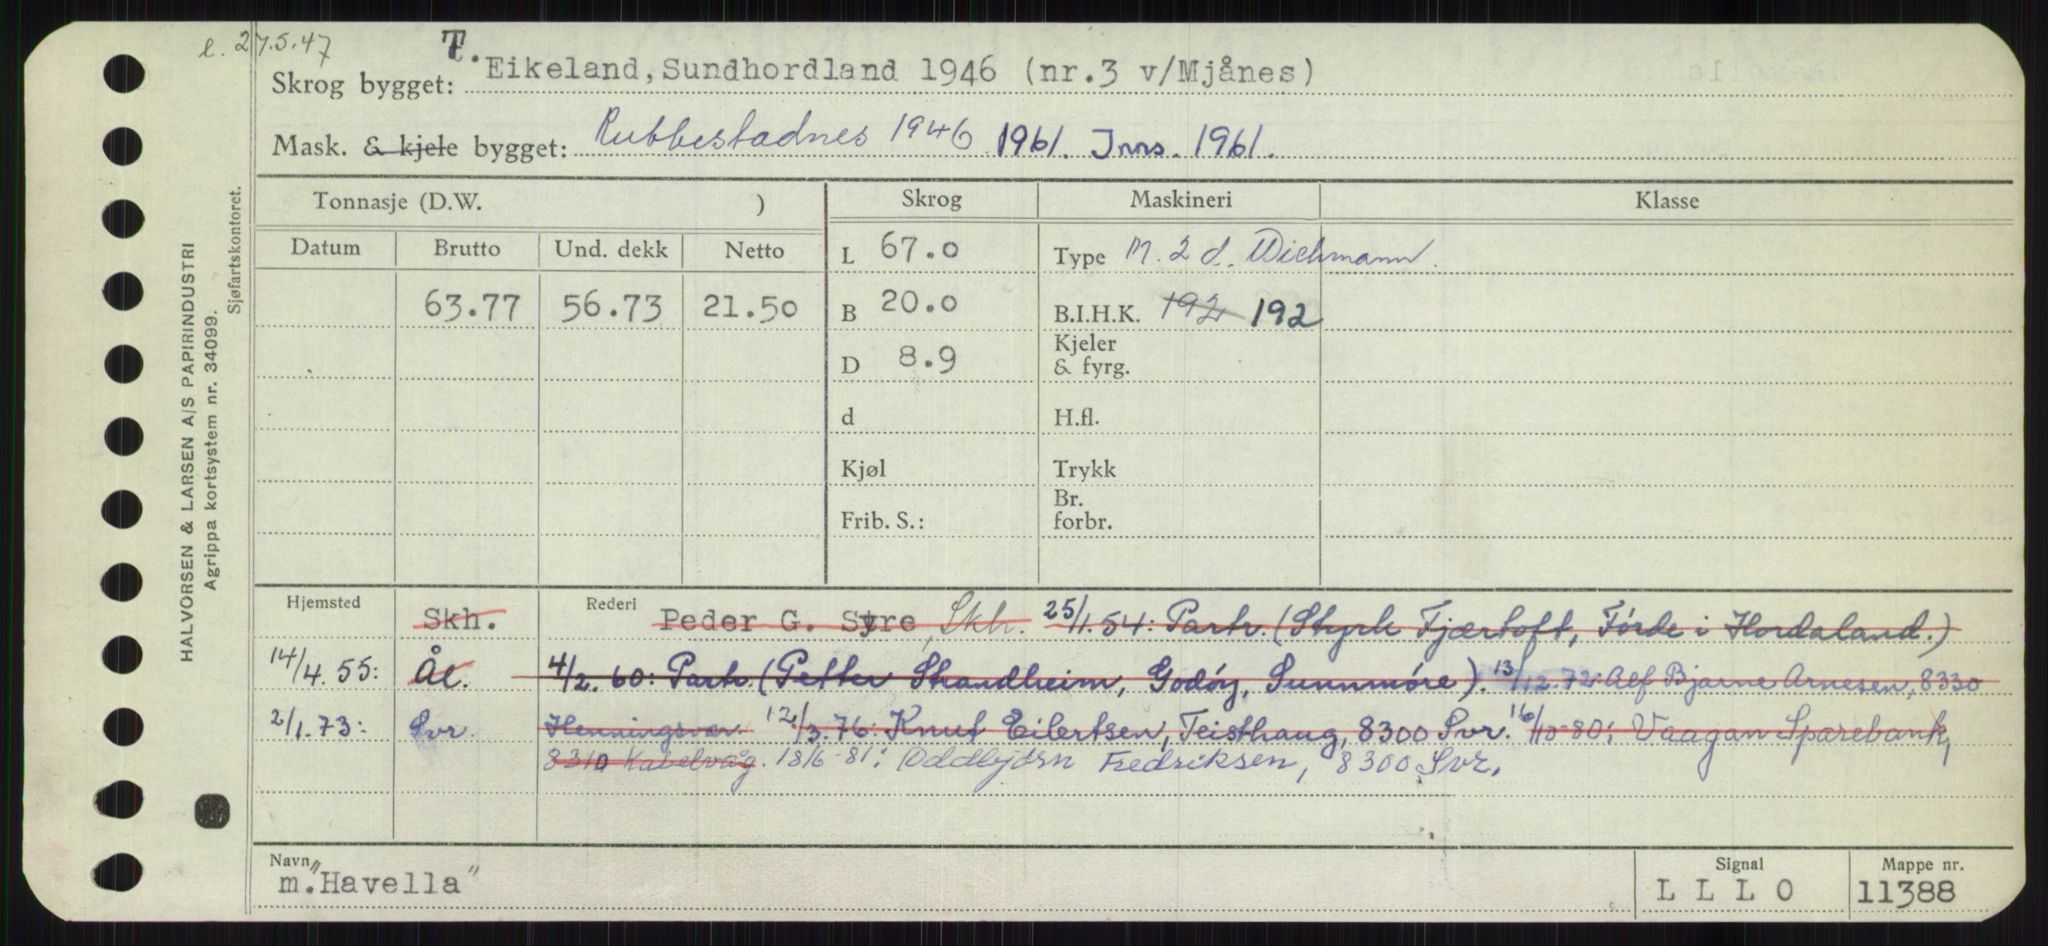 e. 27.5.47
Skrog bygget: T. Eikeland, Sundhordland 1946 (nr.3 v/Mjånes)
Mask. & kjele bygget: Rubbestadnes 1946 1961. Inns. 1961.
Tonnasje (D.W. ) Skrog Maskineri Klasse
Datum Brutto Und. dekk Netto L 67.0 Type M. 2 d. Wichmann.
63.77 56.73 21.50 B 20.0 B.I.H.K. 192 192
D 8.9 Kjeler & fyrg.
d H.fl.
Kjøl Trykk
Frib. S.: Br. forbr.
Hjemsted Skh. Rederi Peder G. Styre, Skh. 25/1.54: Partr. (Styrk Fjærtoft, Förde i Hordaland.)
14/4.55: Ål. 4/2.60: Partr. (Petter Strandheim, Godöy, Sunnmöre). 13/12.72: Alf Bjarne Arnesen, 8330
2/1.73: Svr. Henningsvær. 12/3.76: Knut Eilertsen, Teisthaug, 8300 Svr. 16/10-80: Vaagan Sparebank,
8310 Kabelvåg. 18/6-81: Oddbjörn Fredriksen, 8300 Svr.
Navn Signal Mappe nr.
m. "Havella" L L L O 11388
HALVORSEN & LARSEN A/S PAPIRINDUSTRI
Agrippa kortsystem nr. 34099.
Sjøfartskontoret.